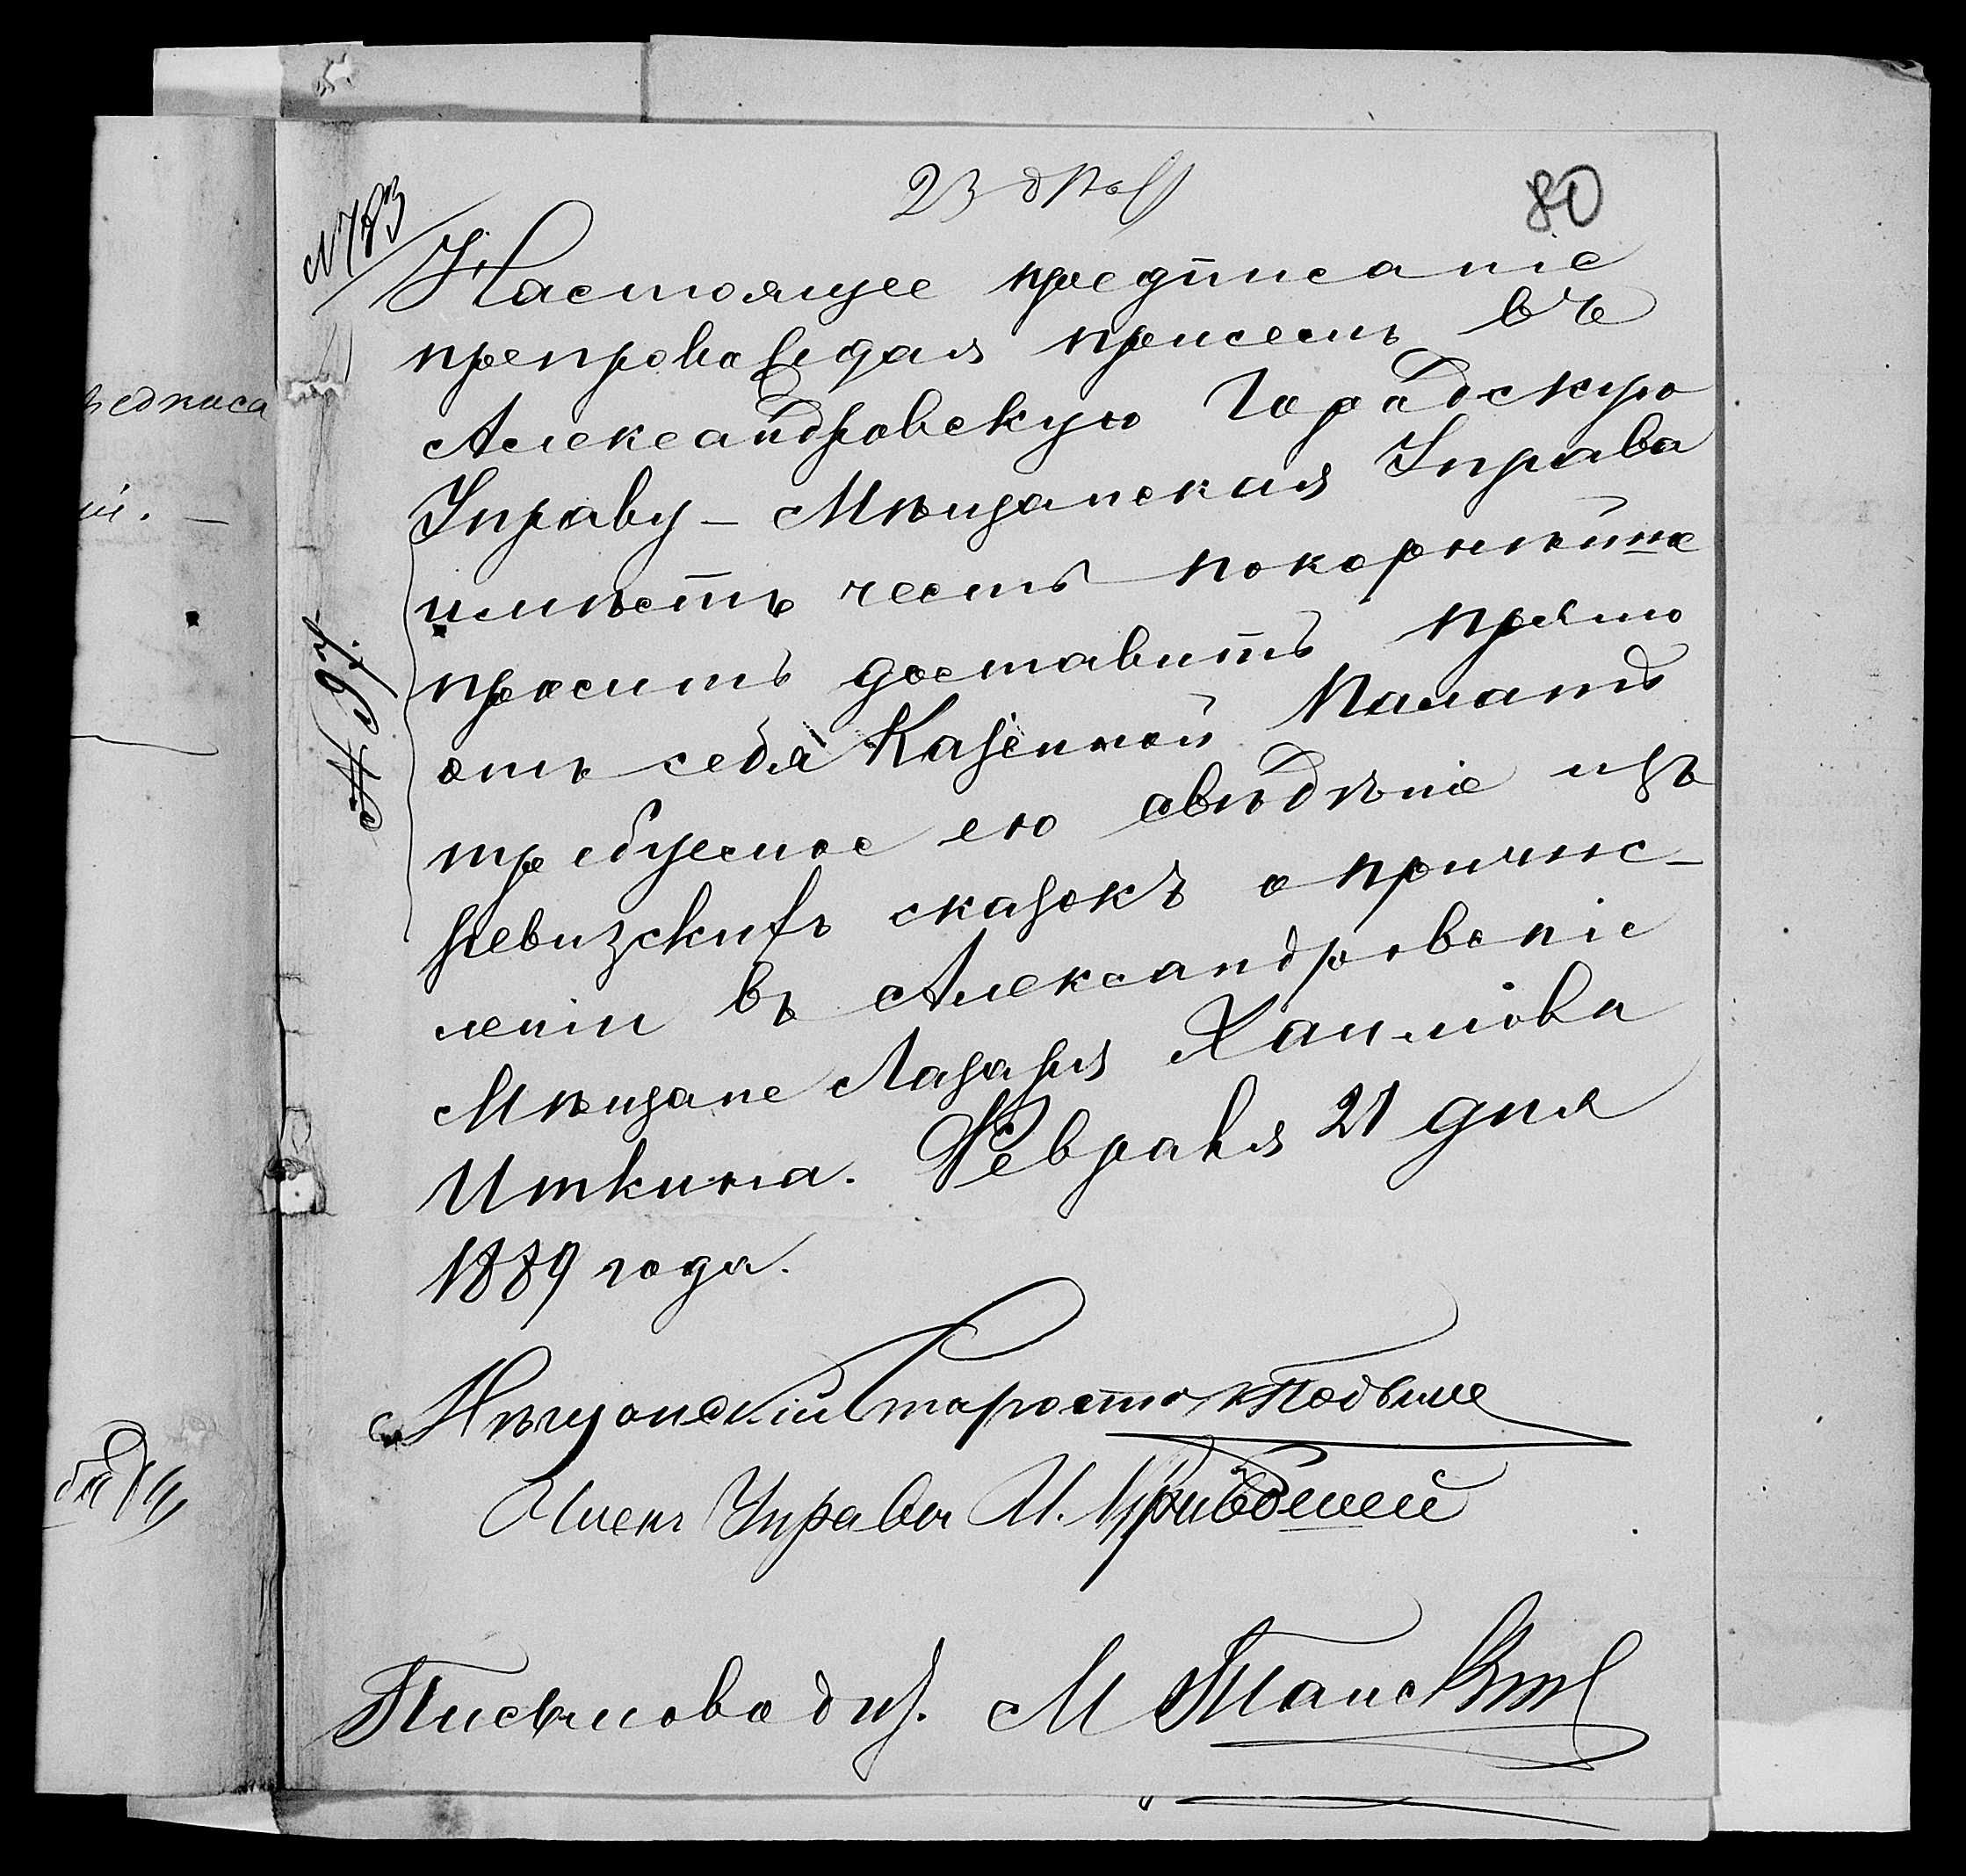 23 фев
80
№ 783
Настоящее предписаніе
препровождая присемъ въ
Александровскую Городскую
Управу – Мѣщанская Управа
имѣетъ честь покорнѣйше
просить доставить прямо
отъ себя Казенной Палатѣ
требуемое ею свѣдѣніе изъ
ревизскихъ сказокъ о причис-
леніи въ Александровскіе
Мѣщане Лазаря Хаимова
Иткина. Февраля 21 дня
1889 года.
Мѣщанскій Староста
Членъ Управы И.
Письмовод. М
едписа